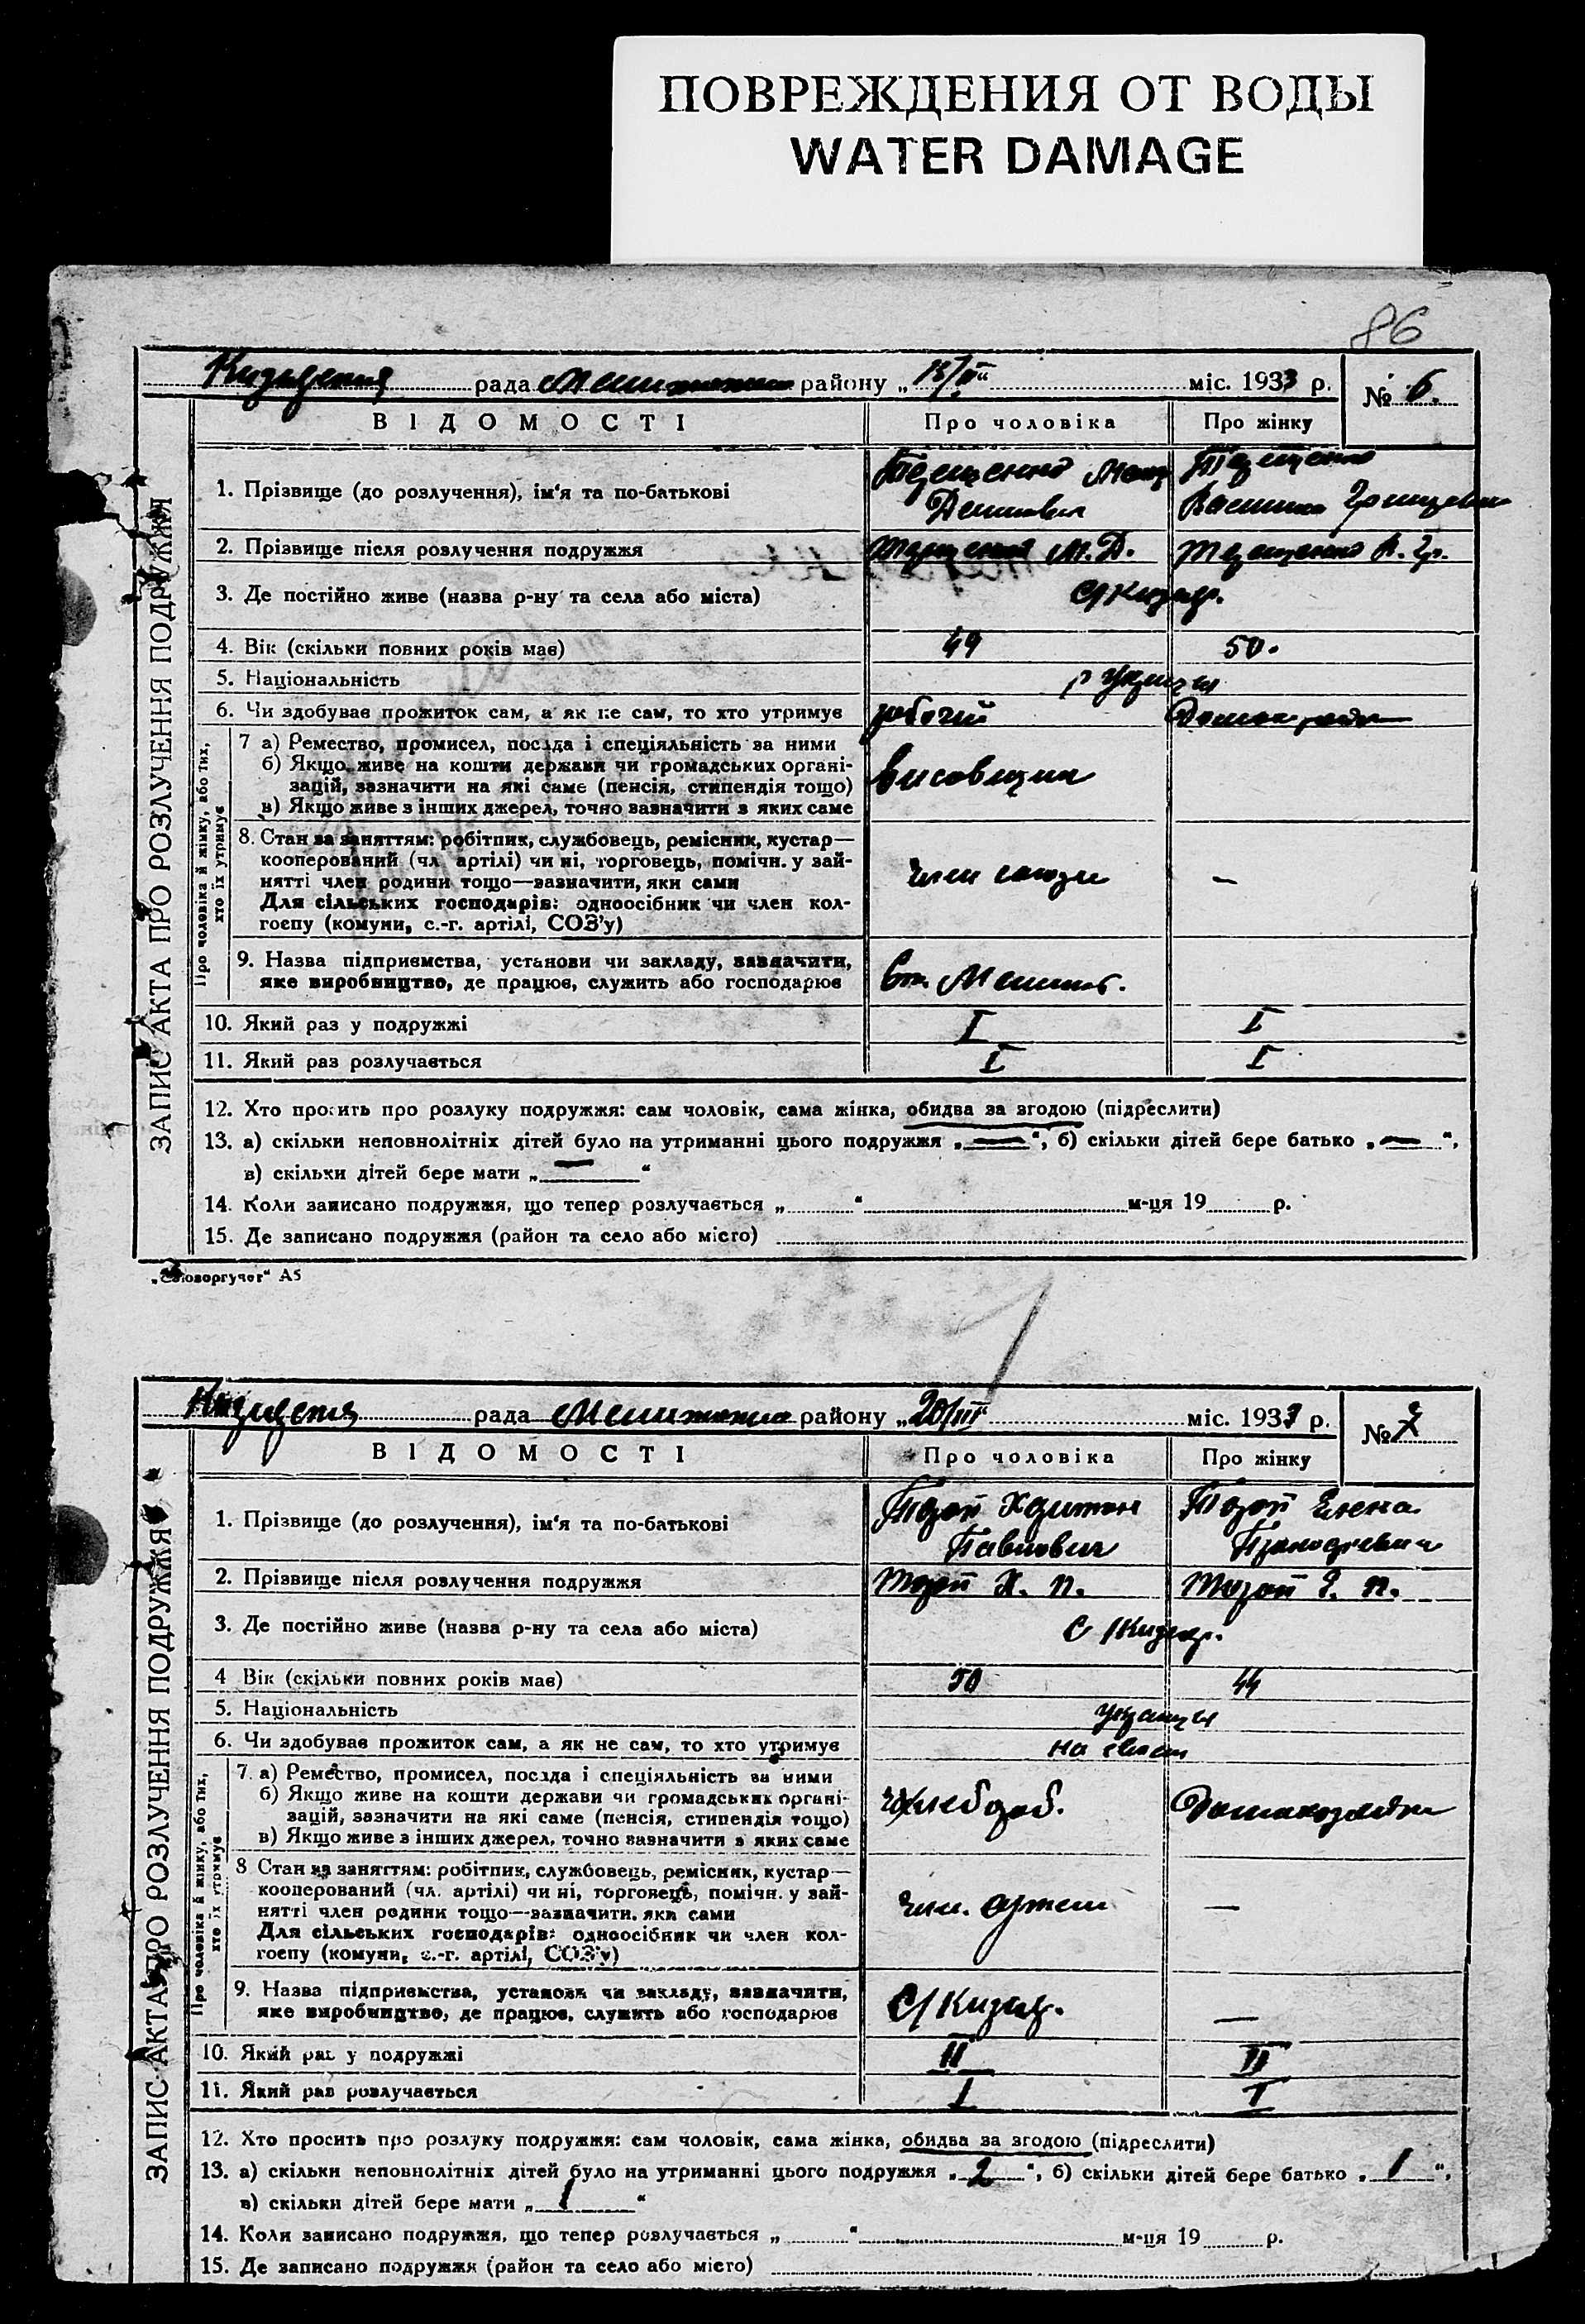 ПОВРЕЖДЕНИЯ ОТ ВОДЫ
WATER DAMAGE
86
рада району „15/ “ міс. 1933 р.
№ 6.
ВІДОМОСТІ
Про чоловіка
Про жінку
ЗАПИС АКТА ПРО РОЗЛУЧЕННЯ ПОДРУЖЖЯ
1. Прізвище (до розлучення), ім'я та по-батькові
2. Прізвище після розлучення подружжя
М. Д.
3. Де постійно живе (назва р-ну та села або міста)
4. Вік (скільки повних років має)
49
50.
5. Національність
6. Чи здобував прожиток сам, а як не сам, то хто утримує
робочий
Про чоловіка й жінку, або тих,
хто їх утримує
7 а) Ремество, промисел, посада і спеціяльність за ними
б) Якщо живе на кошти держави чи громадських органі-
зацій, зазначити на які саме (пенсія, стипендія тощо)
в) Якщо живе з інших джерел, точно зазначити з яких саме
8. Стан за заняттям: робітник, службовець, ремісник, кустар—
кооперований (чл. артілі) чи ні, торговець, помічн. у зай-
нятті член родини тощо—зазначити, яки сами
Для сільських господарів: одноосібник чи член кол-
госпу (комуни, с.-г. артілі, СОЗ'у)
член союзу
—
9. Назва підприємства, установи чи закладу, зазначити,
яке виробництво, де працює, служить або господарює
10. Який раз у подружжі
I
I
11. Який раз розлучається
I
I
12. Хто просить про розлуку подружжя: сам чоловік, сама жінка, обидва за згодою (підреслити)
13. а) скільки неповнолітніх дітей було на утриманні цього подружжя „—“, б) скільки дітей бере батько „—“,
в) скільки дітей бере мати „—“
14. Коли записано подружжя, що тепер розлучається „ “ м-ця 19 р.
15. Де записано подружжя (район та село або місто)
„Союзоргучот“ А5
рада району „20/III“ міс. 1933 р.
№ 7
ВІДОМОСТІ
Про чоловіка
Про жінку
ЗАПИС АКТА ПРО РОЗЛУЧЕННЯ ПОДРУЖЖЯ
1. Прізвище (до розлучення), ім'я та по-батькові
Харитон
Елена
Павлович
2. Прізвище після розлучення подружжя
Х. П.
Е. П.
3. Де постійно живе (назва р-ну та села або міста)
4 Вік (скільки повних років має)
50
44
5. Національність
6. Чи здобував прожиток сам, а як не сам, то хто утримує
Про чоловіка й жінку, або тих,
хто їх утримує
7. а) Ремество, промисел, посада і спеціяльність за ними
б) Якщо живе на кошти держави чи громадських органі-
зацій, зазначити на які саме (пенсія, стипендія тощо)
в) Якщо живе з інших джерел, точно зазначити з яких саме
хлебороб.
8 Стан за заняттям: робітник, службовець, ремісник, кустар—
кооперований (чл. артілі) чи ні, торговець, помічн. у зай-
нятті член родини тощо—зазначити, яки сами
Для сільських господарів: одноосібник чи член кол-
госпу (комуни, с.-г. артілі, СОЗ'у)
член. артели
—
9. Назва підприємства, установи чи закладу, зазначити,
яке виробництво, де працює, служить або господарює
—
10. Який раз у подружжі
II
II
11. Який раз розлучається
I
I
12. Хто просить про розлуку подружжя: сам чоловік, сама жінка, обидва за згодою (підреслити)
13. а) скільки неповнолітніх дітей було на утриманні цього подружжя „2“, б) скільки дітей бере батько „1“,
в) скільки дітей бере мати „1“
14. Коли записано подружжя, що тепер розлучається „ “ м-ця 19 р.
15. Де записано подружжя (район та село або місто)